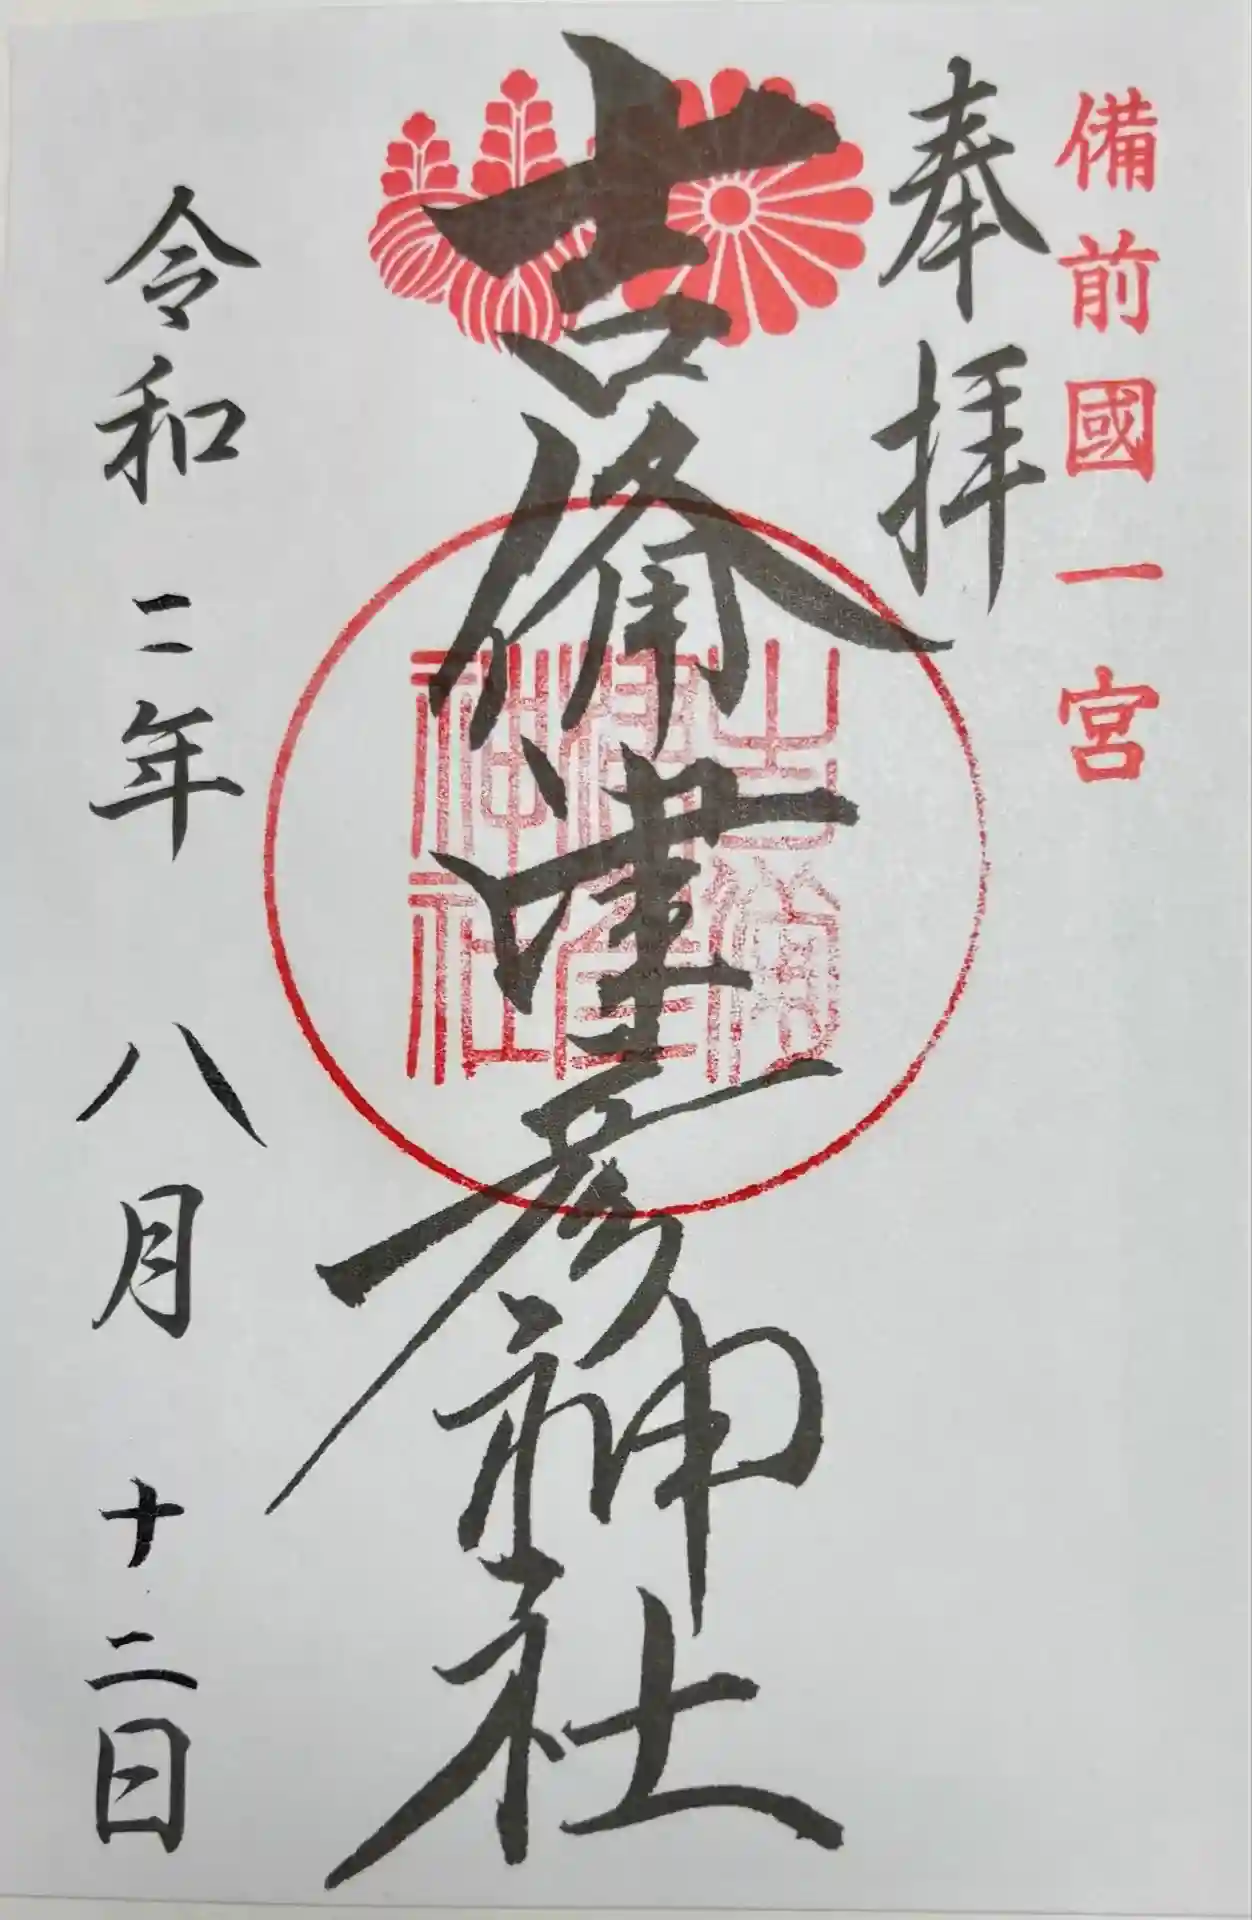 備前國一宮
奉拝
吉備津彦神社
吉備
津彦
神社
令和二年八月十二日